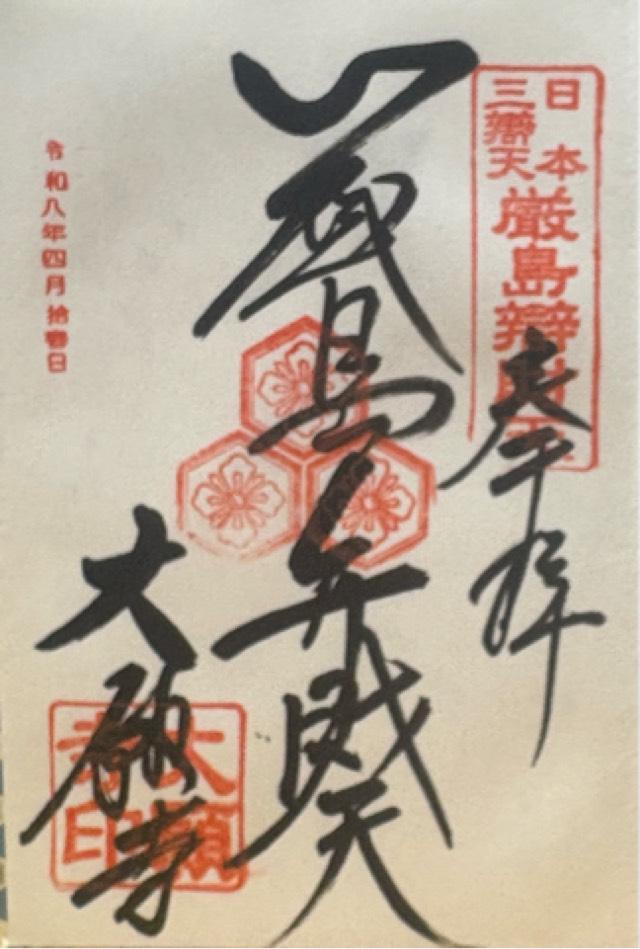 奉拝
日本
三辨天
厳島辨財天
厳島弁財天
令和八年四月拾壱日
大願寺
大願
寺印